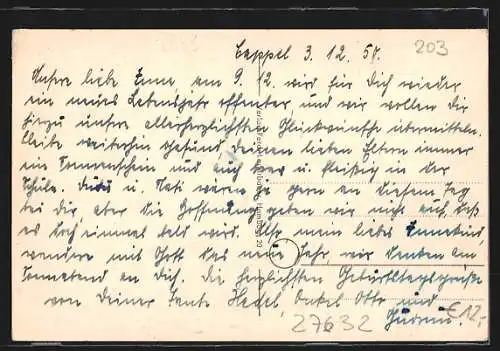 Cappel 3. 12. 50.
203
Unsere liebe Änne, am 9. 12. wird für Dich wieder
ein neues Lebensjahr offenbar und wir wollen Dir
hierzu unsere allerherzlichsten Glückwünsche übermitteln.
Bleibe weiterhin gesund, Deinen lieben Eltern immer
ein Sonnenschein und auch brav u. fleißig in der
Schule. u. wären so gern an diesem Tag
bei Dir, aber die Hoffnung geben wir nicht auf, daß
es doch einmal bald wird. Also mein liebes Ännekind,
wandere mit Gott das neue Jahr, wir denken am
Sonnabend an Dich. Die herzlichsten Geburtstagsgrüße
von Deiner Tante Hedel, Onkel Otto und
Gudrun.
27632
€12,-